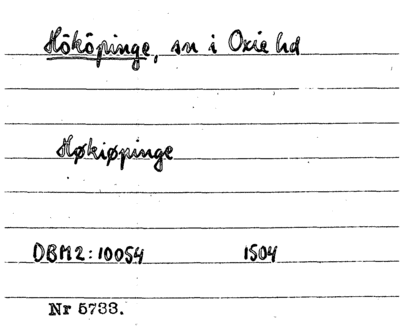 Hököpinge, sn i Oxie hd
Høkiøpinge
DBM2:10054 1504
Nr 5733.